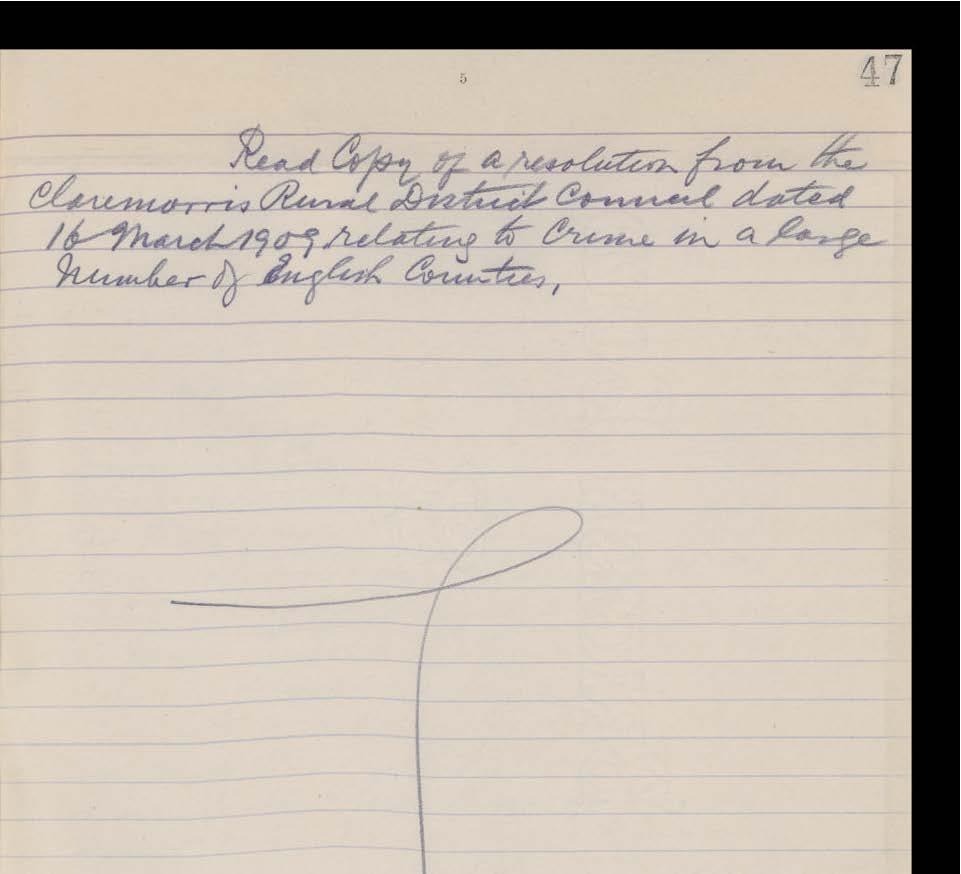 5
47
Read Copy of a resolution from the
Claremorris Rural District Council dated
16 March 1909 relating to Crime in a large
Number of English Counties,